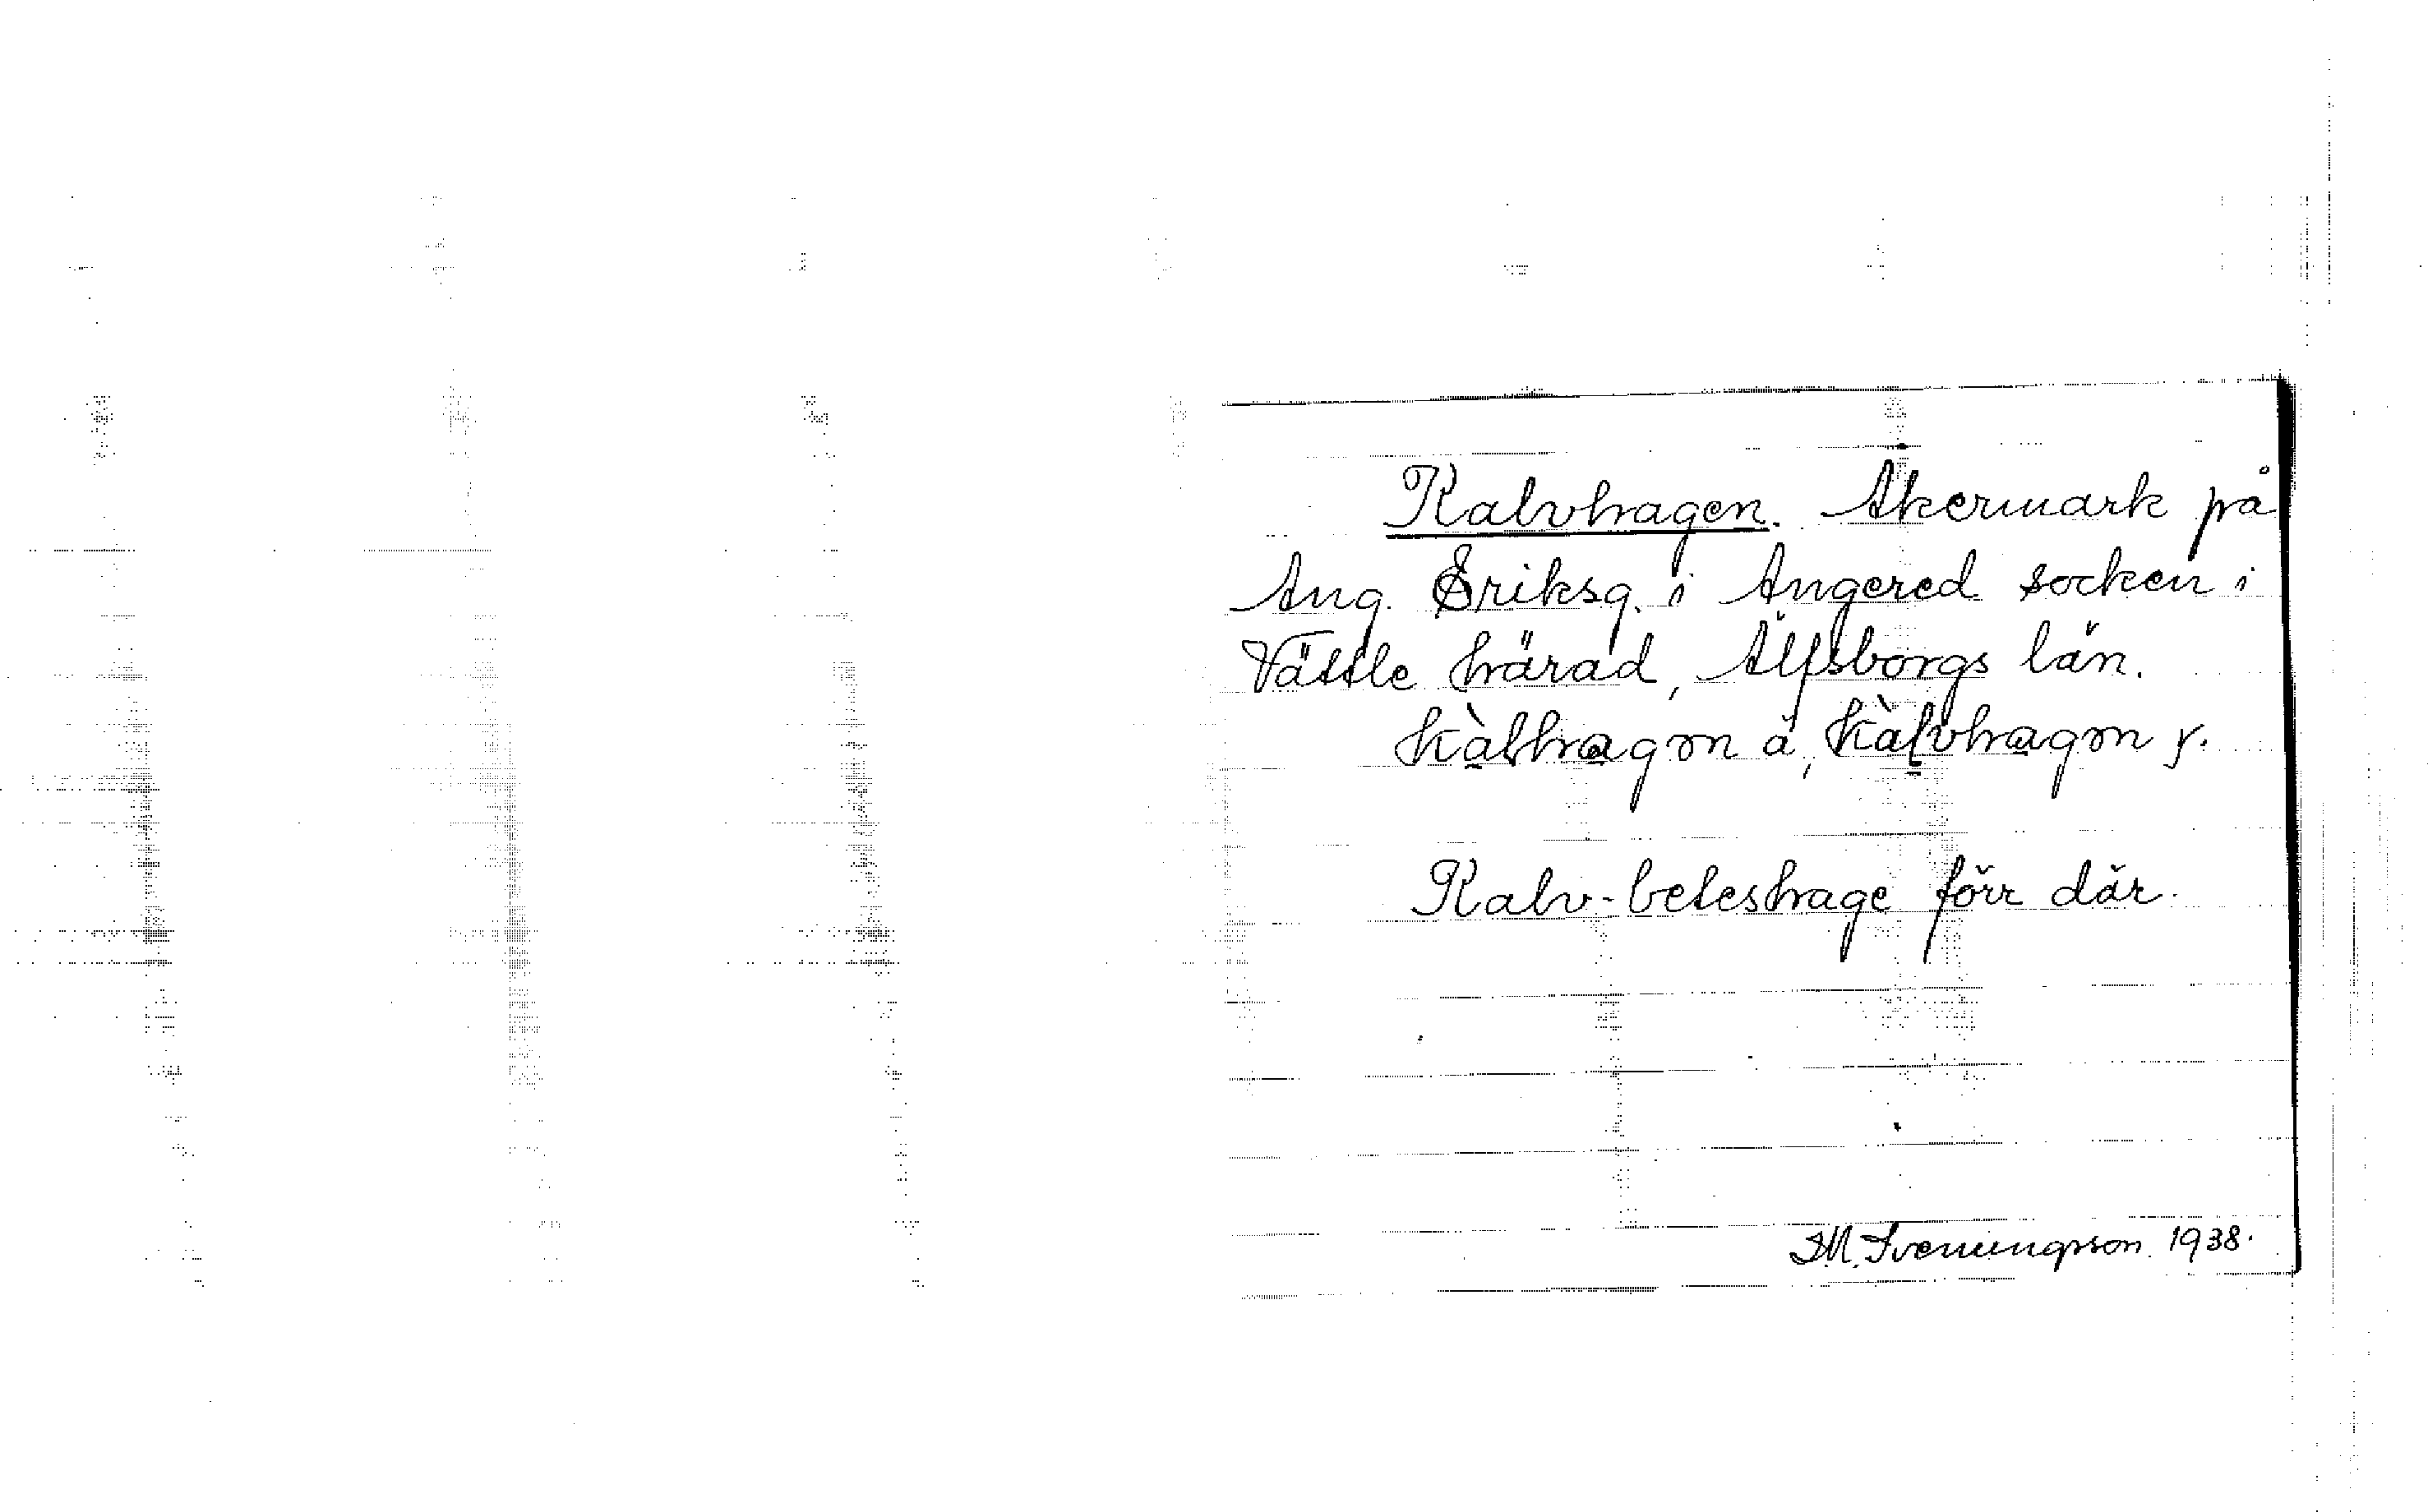 Kalvhagen. Åkermark på
Ang. Eriksg. i Angered socken i
Vättle härad, Älfsborgs län.
kàlhagɔn ä, kàlvhagɔn y.
Kalv-beteshage förr där.
I.M. Svenungsson 1938.